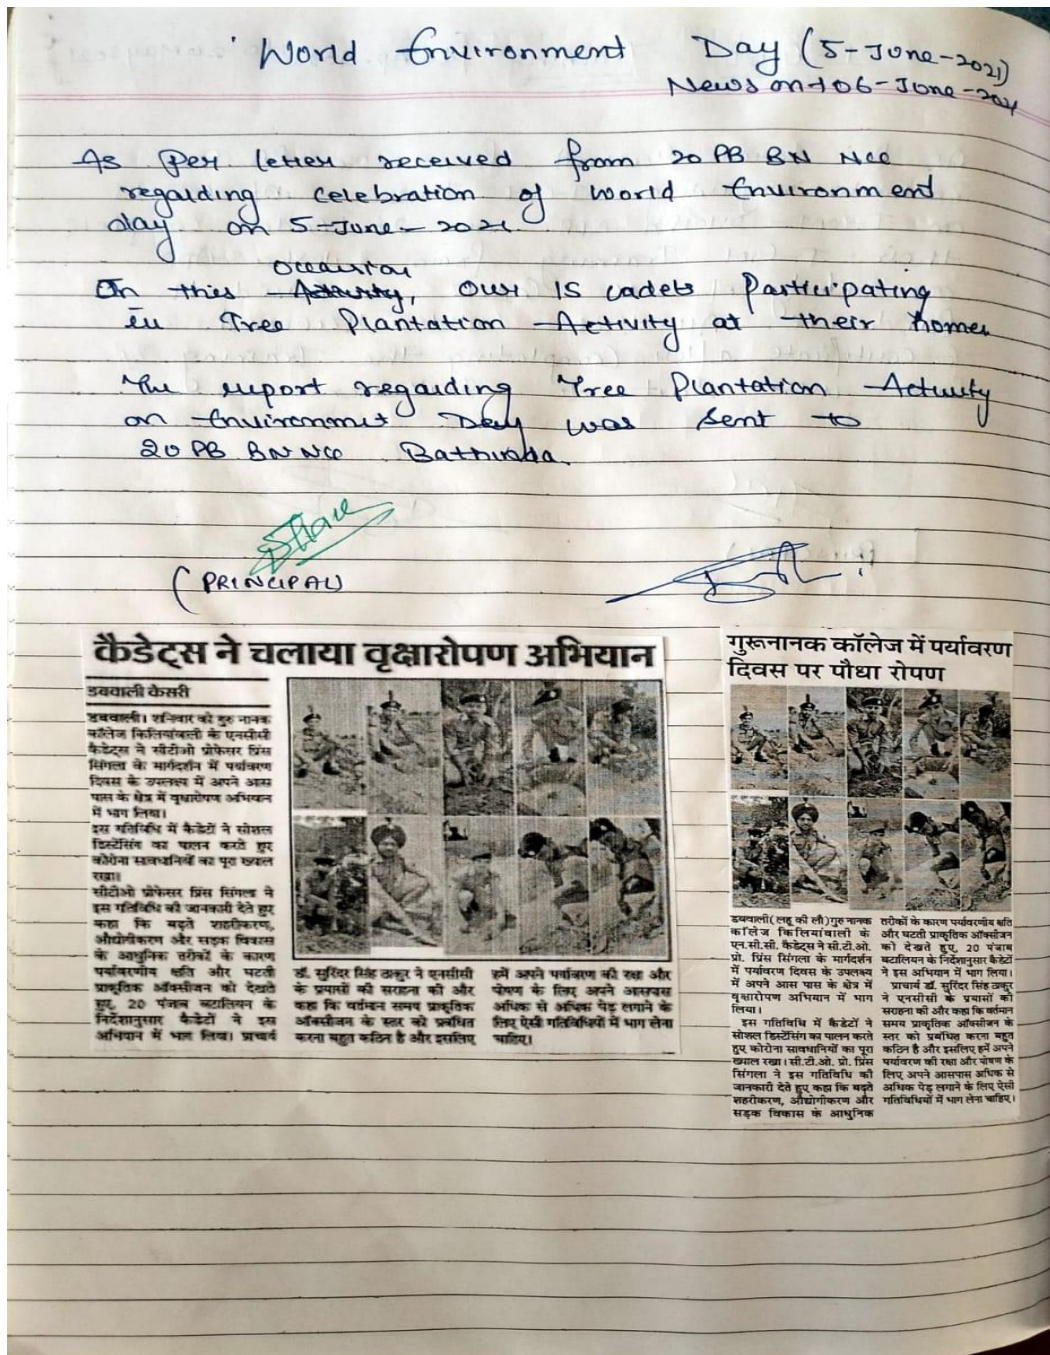 World Environment Day (5-June-2021)
News on 06-June-2021
As Per letter received from 20 PB BN NCC
regarding celebration of World Environment
day on 5-June-2021.
occasion
On this Activity, our 15 cadets Participating
in Tree Plantation Activity at their homes
The report regarding Tree Plantation Activity
on Environment Day was sent to
20 PB BN NCC Bathinda.
(PRINCIPAL)
कैडेट्स ने चलाया वृक्षारोपण अभियान
डबवाली केसरी
डबवाली। शनिवार को गुरु नानक
कॉलेज किलियांवाली के एनसीसी
कैडेट्स ने सीटीओ प्रोफेसर प्रिंस
सिंगला के मार्गदर्शन में पर्यावरण
दिवस के उपलक्ष्य में अपने आस
पास के क्षेत्र में वृक्षारोपण अभियान
में भाग लिया।
इस गतिविधि में कैडेटों ने सोशल
डिस्टेंसिंग का पालन करते हुए
कोरोना सावधानियों का पूरा ख्याल
रखा।
सीटीओ प्रोफेसर प्रिंस सिंगला ने
इस गतिविधि की जानकारी देते हुए
कहा कि बढ़ते शहरीकरण,
औद्योगीकरण और सड़क विकास
के आधुनिक तरीकों के कारण
पर्यावरणीय क्षति और घटती
प्राकृतिक ऑक्सीजन को देखते
हुए, 20 पंजाब बटालियन के
निर्देशानुसार कैडेटों ने इस
अभियान में भाग लिया। प्राचार्य
डॉ. सुरिंदर सिंह ठाकुर ने एनसीसी
के प्रयासों की सराहना की और
कहा कि वर्तमान समय प्राकृतिक
ऑक्सीजन के स्तर को प्रबंधित
करना बहुत कठिन है और इसलिए
हमें अपने पर्यावरण की रक्षा और
पोषण के लिए अपने आसपास
अधिक से अधिक पेड़ लगाने के
लिए ऐसी गतिविधियों में भाग लेना
चाहिए।
गुरूनानक कॉलेज में पर्यावरण
दिवस पर पौधा रोपण
डबवाली(लहू की लौ)गुरु नानक
कॉलेज किलियांवाली के
एन.सी.सी. कैडेट्स ने सी.टी.ओ.
प्रो. प्रिंस सिंगला के मार्गदर्शन
में पर्यावरण दिवस के उपलक्ष्य
में अपने आस पास के क्षेत्र में
वृक्षारोपण अभियान में भाग
लिया।
इस गतिविधि में कैडेटों ने
सोशल डिस्टेंसिंग का पालन करते
हुए कोरोना सावधानियों का पूरा
ख्याल रखा। सी.टी.ओ. प्रो. प्रिंस
सिंगला ने इस गतिविधि की
जानकारी देते हुए कहा कि बढ़ते
शहरीकरण, औद्योगीकरण और
सड़क विकास के आधुनिक
तरीकों के कारण पर्यावरणीय क्षति
और घटती प्राकृतिक ऑक्सीजन
को देखते हुए, 20 पंजाब
बटालियन के निर्देशानुसार कैडेटों
ने इस अभियान में भाग लिया।
प्राचार्य डॉ. सुरिंदर सिंह ठाकुर
ने एनसीसी के प्रयासों की
सराहना की और कहा कि वर्तमान
समय प्राकृतिक ऑक्सीजन के
स्तर को प्रबंधित करना बहुत
कठिन है और इसलिए हमें अपने
पर्यावरण की रक्षा और पोषण के
लिए अपने आसपास अधिक से
अधिक पेड़ लगाने के लिए ऐसी
गतिविधियों में भाग लेना चाहिए।